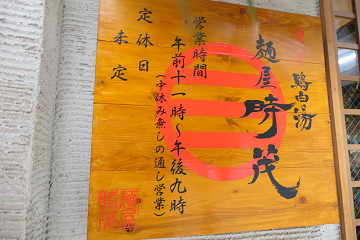 鶏白湯
麺屋 時茂
営業時間
午前十一時～午後九時
（中休み無しの通し営業）
定休日
未定
麺屋
時茂